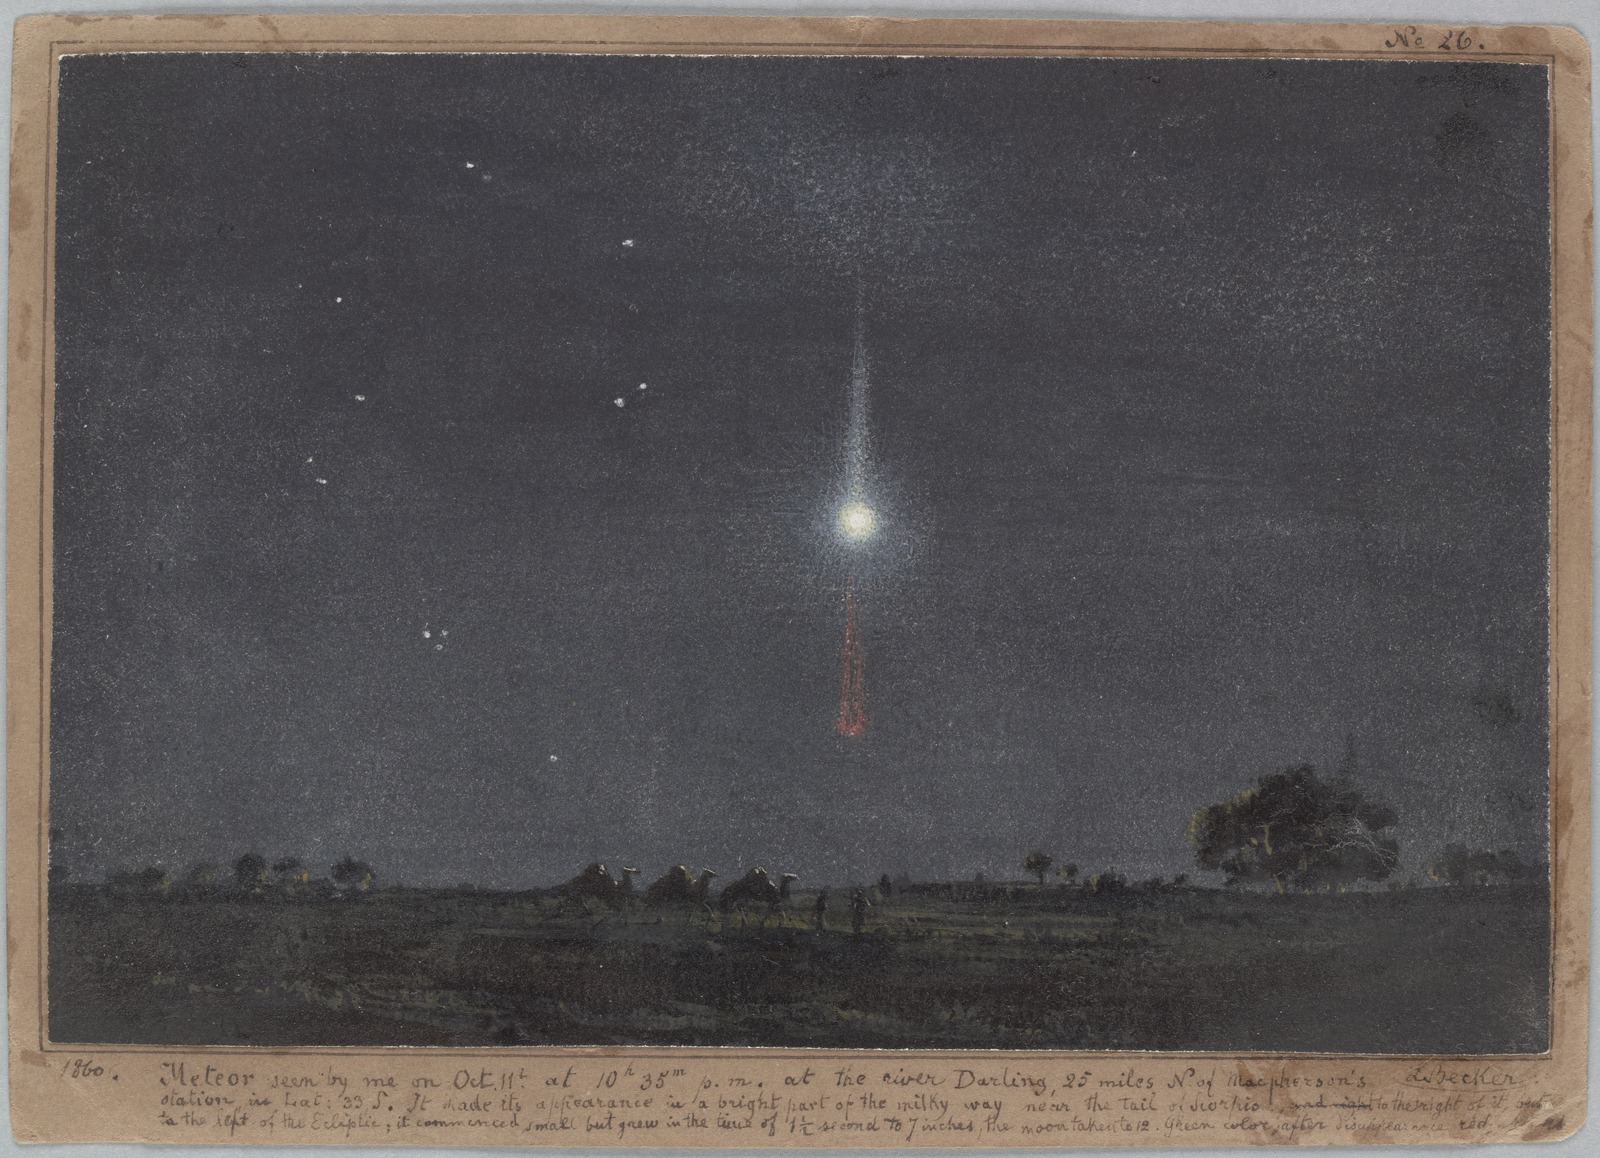 No 26.
1860. Meteor seen by me on Oct. 11t. at 10h 35m p.m. at the river Darling, 25 miles N. of Macpherson's LBecker.
station in Lat: 33 S. It made its appearance in a bright part of the milky way near the tail of Scorpio, and right to the right of it, but
to the left of the Ecliptic; it commenced small but grew in the time of 1½ second to 7 inches, the moon taken to 12. Green color, after disappearance red